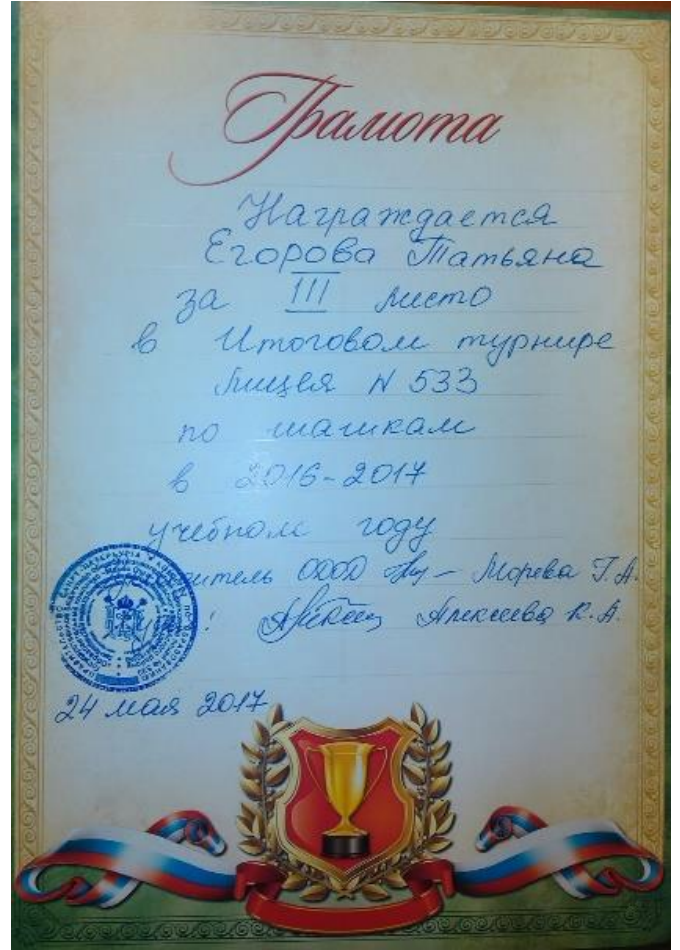 Грамота
Награждается
Егорова Татьяна
за III место
в Итоговом турнире
Лицея N 533
по шашкам
в 2016-2017
учебном году
ОДОД Морева Г.А.
Алексеева К.А.
24 мая 2017